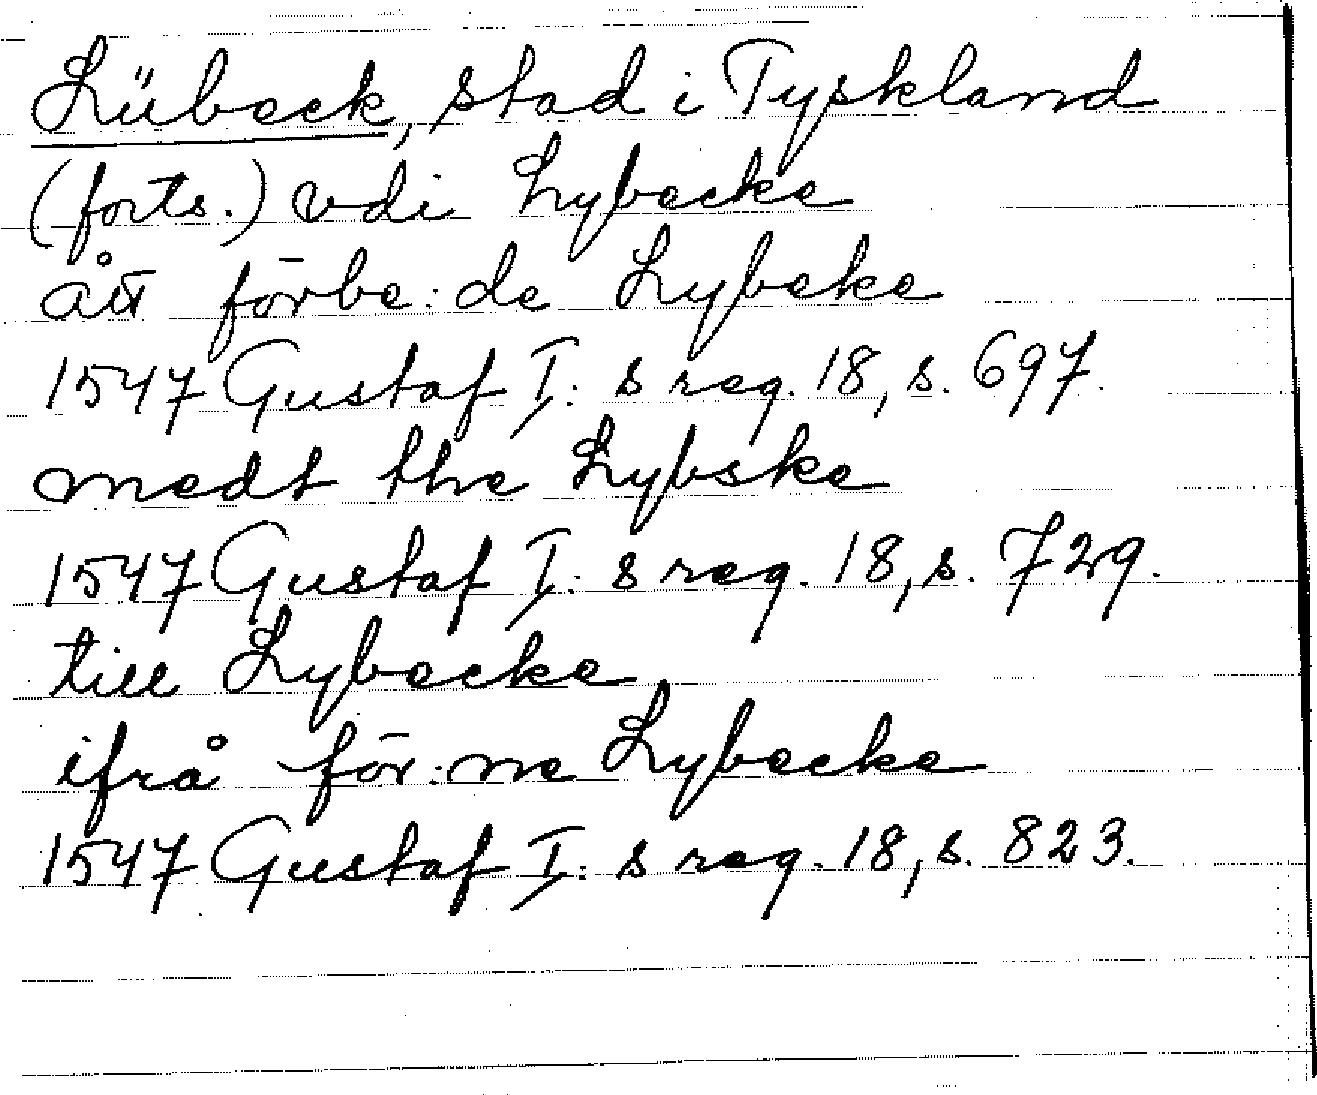 Lübeck, stad i Tyskland
(forts.) vdi Lybecke
ått förbe:de Lybeke
1547 Gustaf I:s reg. 18, s. 697.
medt the Lybske
1547 Gustaf I:s reg. 18, s. 729.
till Lybecke
ifrå för:ne Lybecke
1547 Gustaf I:s reg. 18, s. 823.